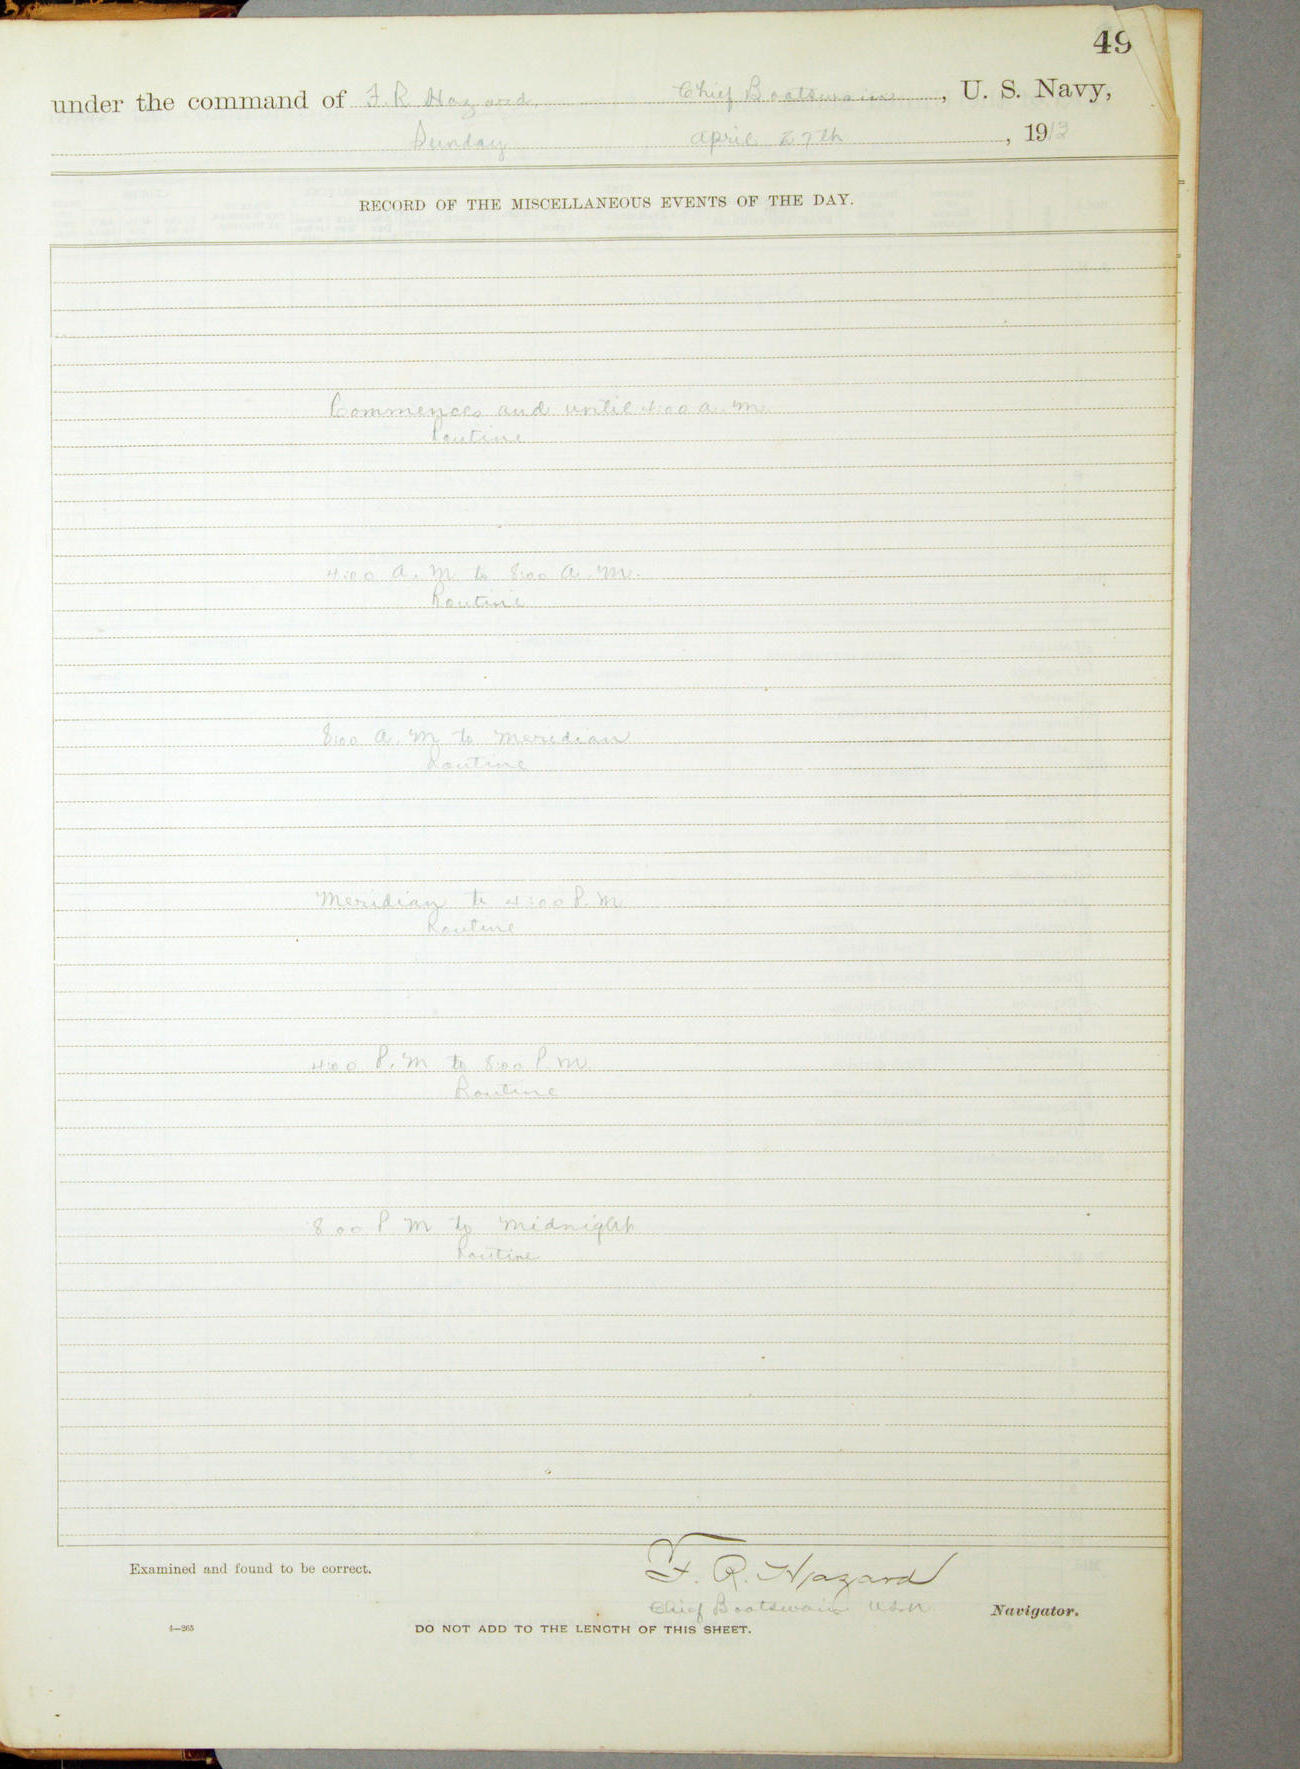 49
under the command of F. R. Hazard, Chief Boatswain, U. S. Navy,
Sunday April 27th, 1913
RECORD OF THE MISCELLANEOUS EVENTS OF THE DAY.
Commences and until 4:00 a. m.
Routine
4:00 A. M to 8:00 A. M.
Routine
8:00 A. M to Meridian
Routine
Meridian to 4:00 P. M
Routine
4:00 P. M to 8:00 P. M.
Routine
8 00 P M to Midnight
Routine
Examined and found to be correct.
F. R. Hazard
Chief Boatswain U.S.N. Navigator.
4—265
DO NOT ADD TO THE LENGTH OF THIS SHEET.